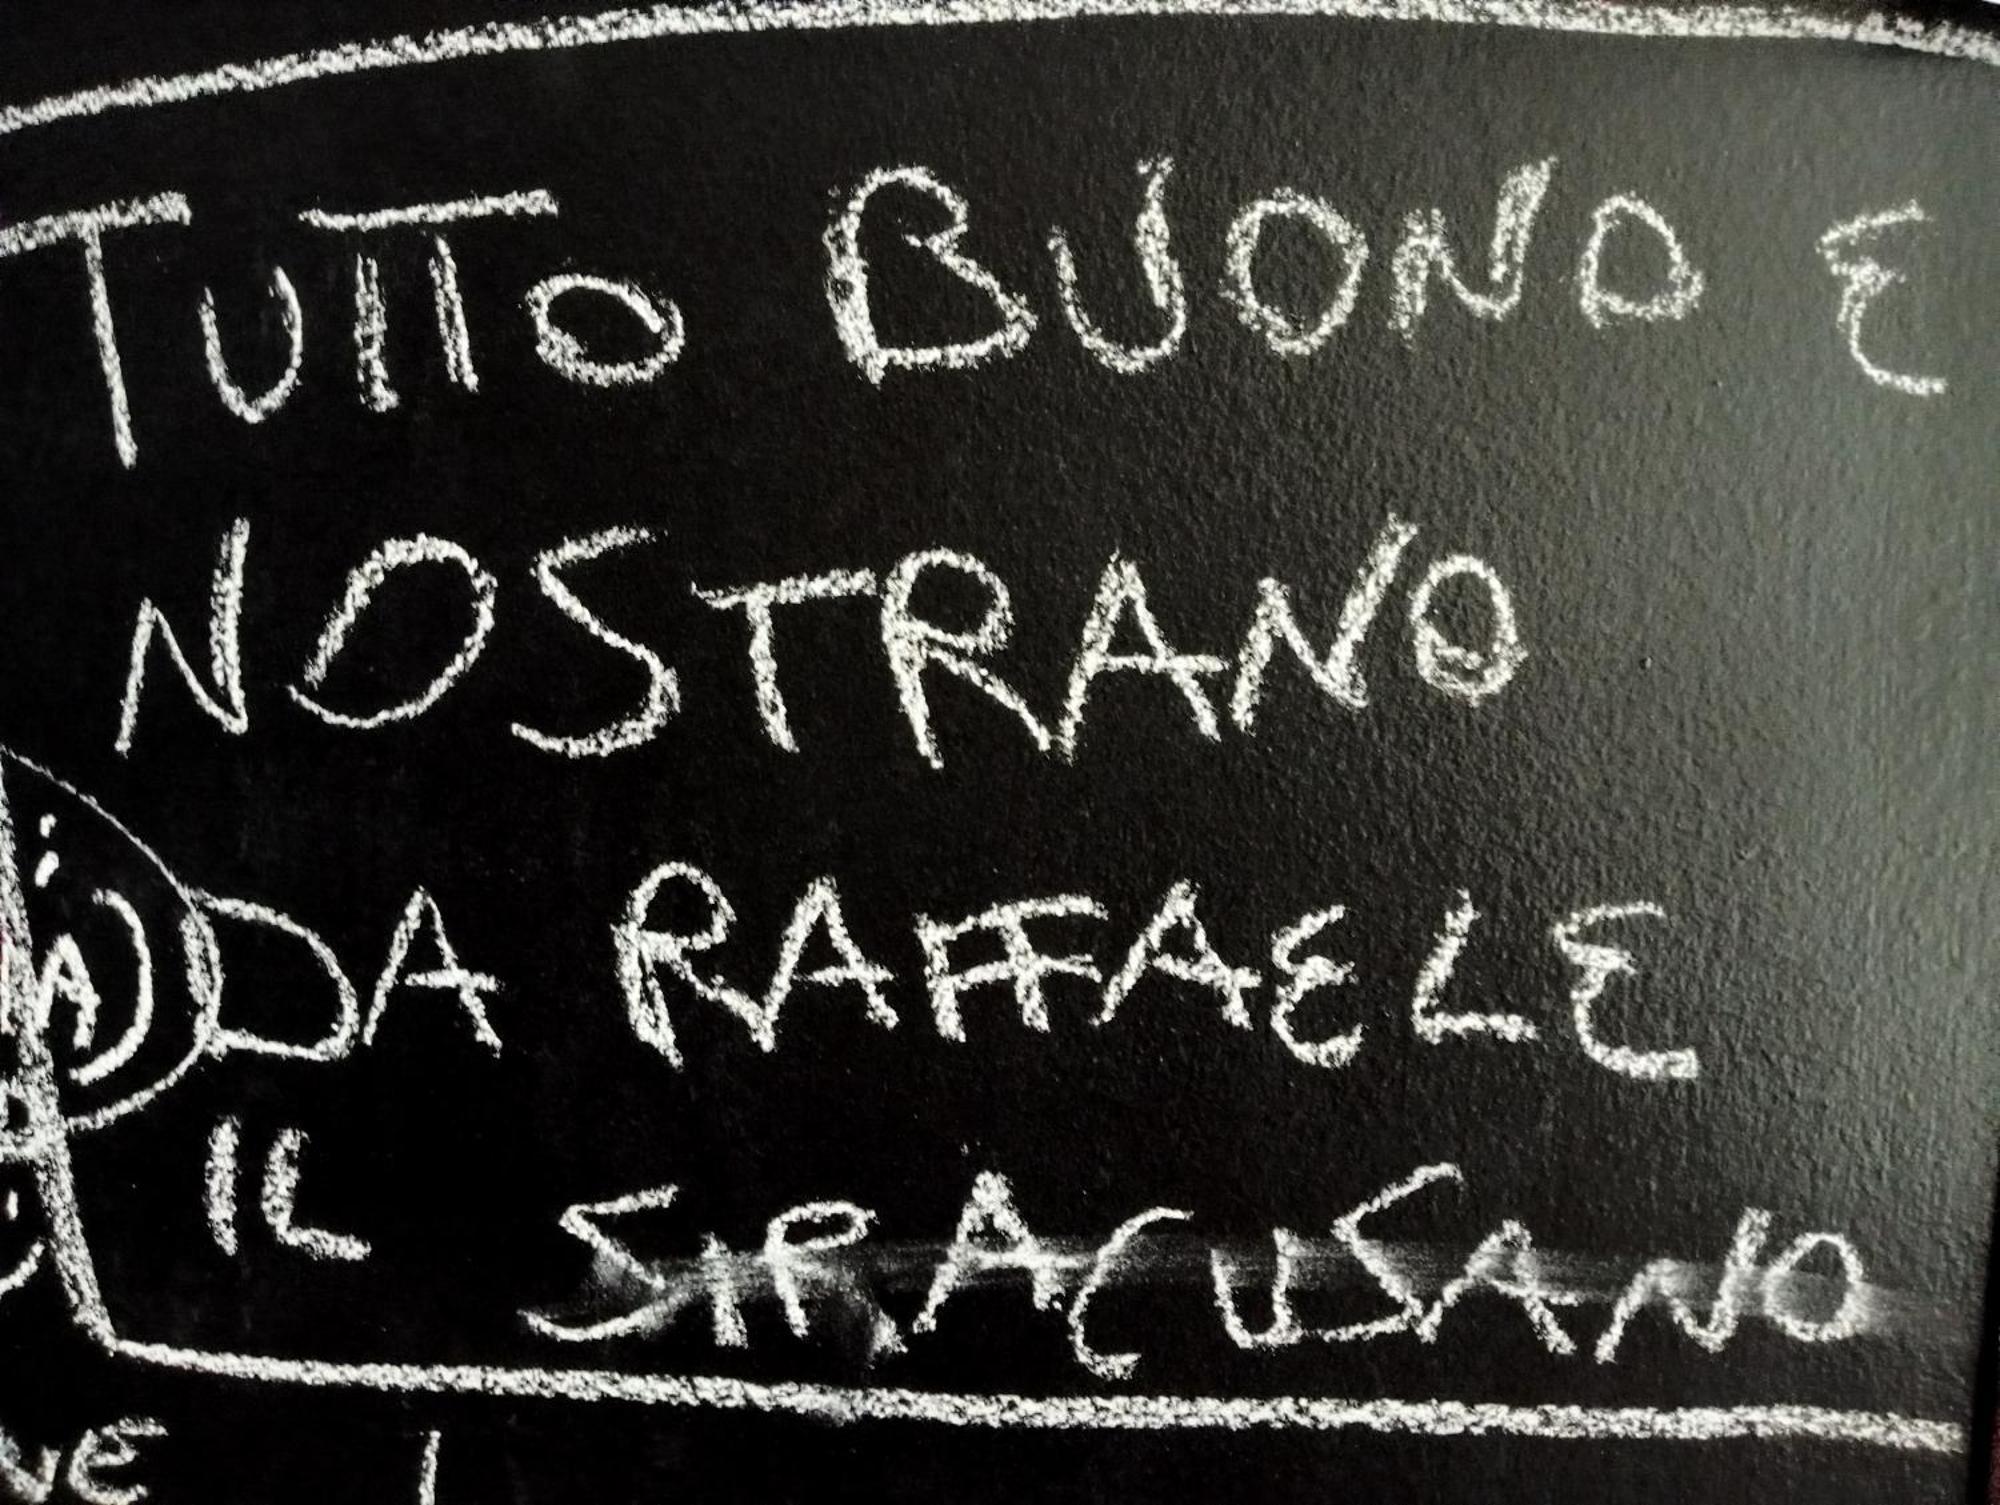 TUTTO BUONO E
NOSTRANO
DA RAFFAELE
IL SIRACUSANO